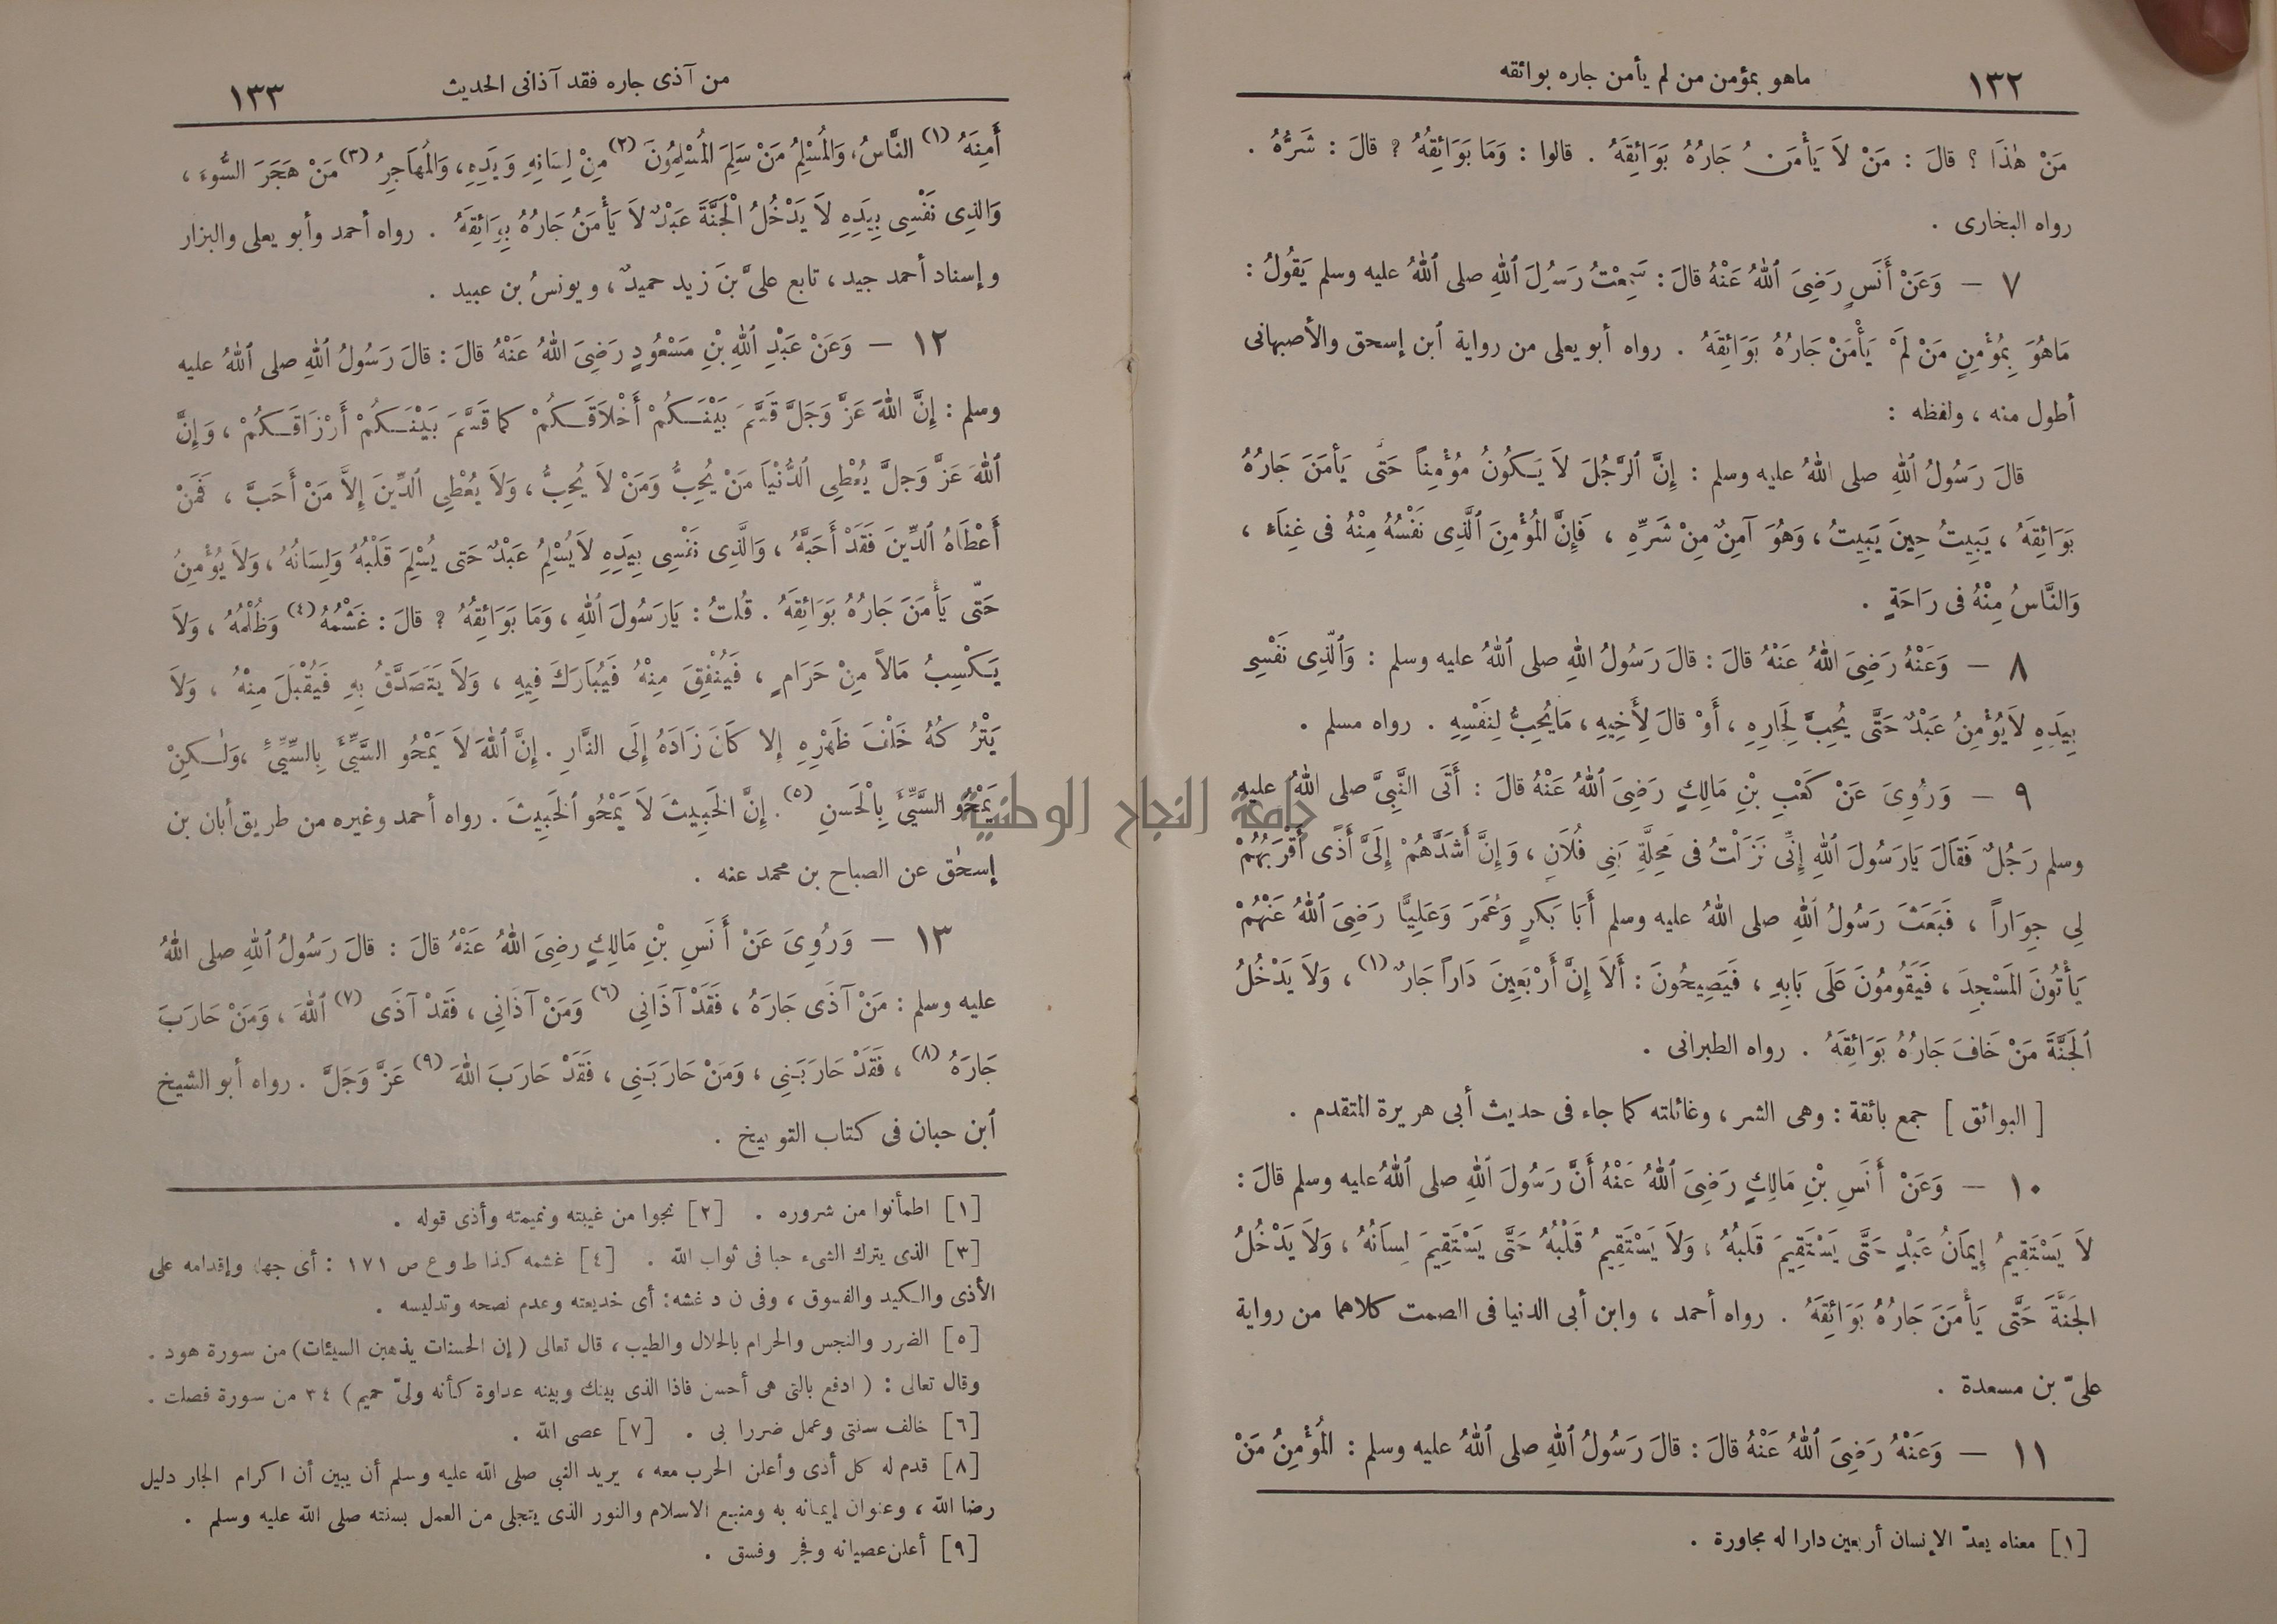 ١٣٢ ماهو بمؤمن من لم يأمن جاره بوائقه
مَنْ هٰذَا ؟ قالَ : مَنْ لاَ يَأْمَنُ جَارُهُ بَوَائِقَهُ . قالوا : وَمَا بَوَائِقُهُ ؟ قالَ : شَرُّهُ .
رواه البخارى .
٧ — وَعَنْ أَنَسٍ رَضِىَ ٱللهُ عَنْهُ قالَ : سَمِعْتُ رَسُولَ ٱللهِ صلى ٱللهُ عليه وسلم يَقُولُ :
مَاهُوَ بِمُؤْمِنٍ مَنْ لَمْ يَأْمَنْ جَارُهُ بَوَائِقَهُ . رواه أبو يعلى من رواية ٱبن إسحق والأصبهانى
أطول منه ، ولفظه :
قالَ رَسُولُ ٱللهِ صلى ٱللهُ عليه وسلم : إِنَّ ٱلرَّجُلَ لاَ يَكُونُ مُؤْمِناً حَتَّى يَأمَنَ جَارُهُ
بَوَائِقَهُ ، يَبِيتُ حِينَ يَبِيتُ ، وَهُوَ آمِنٌ مِنْ شَرِّهِ ، فَإِنَّ المُؤْمِنَ ٱلَّذِى نَفْسُهُ مِنْهُ فى غِنَاءٍ ،
وَالنَّاسُ مِنْهُ فى رَاحَةٍ .
٨ — وَعَنْهُ رَضِىَ ٱللهُ عَنْهُ قالَ : قالَ رَسُولُ اللهِ صلى ٱللهُ عليه وسلم : وَٱلَّذِى نَفْسِى
بِيَدِهِ لاَيُؤْمِنُ عَبْدٌ حَتَّى يُحِبَّ لِجَارِهِ ، أَوْ قالَ لِأَخِيهِ ، مَايُحِبُّ لِنَفْسِهِ . رواه مسلم .
٩ — وَرُوِىَ عَنْ كَعْبِ بْنِ مَالِكٍ رَضِىَ ٱللهُ عَنْهُ قالَ : أَتَى النَّبِىَّ صلى ٱللهُ عليه
وسلم رَجُلٌ فَقَالَ يَارَسُولَ ٱللهِ إِنِّى نَزَلْتُ فى مَحِلَّةِ بَنِى فُلَانٍ ، وَإِنَّ أَشَدَّهُمْ إِلَىَّ أَذًى أَقْرَبُهُمْ
لِى جِوَاراً ، فَبَعَثَ رَسُولُ ٱللهِ صلى ٱللهُ عليه وسلم أَبَا بَكرٍ وَعُمَرَ وَعَلِيًّا رَضِىَ ٱللهُ عَنْهُمْ
يَأْتُونَ المَسْجِدَ ، فَيَقُومُونَ عَلَى بَابِهِ ، فَيَصِيحُونَ : أَلاَ إِنَّ أَرْبَعِينَ دَاراً جَارٌ (١) ، وَلاَ يَدْخُلُ
ٱلجَنَّةَ مَنْ خَافَ جَارُهُ بَوَائِقَهُ . رواه الطبرانى .
[ البوائق ] جمع بائقة : وهى الشر ، وغائلته كما جاء فى حديث أبى هريرة المتقدم .
١٠ — وَعَنْ أَنَسِ بْنِ مَالِكٍ رَضِىَ ٱللهُ عَنْهُ أَنَّ رَسُولَ ٱللهِ صلى ٱللهُ عليه وسلم قالَ :
لاَ يَسْتَقِيمُ إِيمَانُ عَبْدٍ حَتَّى يَسْتَقِيمَ قَلبُهُ ، وَلاَ يَسْتَقِيمُ قَلْبُهُ حَتَّى يَسْتَقِيمَ لِسَانُهُ ، وَلاَ يَدْخُلُ
الجَنَّةَ حَتَّى يَأْمَنَ جَارُهُ بَوَائِقَهُ . رواه أحمد ، وابن أبى الدنيا فى الصمت كلاهما من رواية
علىّ بن مسعدة .
١١ — وَعَنْهُ رَضِىَ ٱللهُ عَنْهُ قالَ : قالَ رَسُولُ ٱللهِ صلى ٱللهُ عليه وسلم : المُؤْمِنُ مَنْ
[١] معناه يعدّ الإنسان أربعين دارا له مجاورة .
من آذى جاره فقد آذانى الحديث ١٣٣
أَمِنَهُ (١) النَّاسُ ، وَالمُسْلِمُ مَنْ سَلِمَ المُسْلِمُونَ (٢) مِنْ لِسَانِهِ وَيَدِهِ ، وَالمُهَاجِرُ (٣) مَنْ هَجَرَ السُّوءَ ،
وَالذِى نَفْسِى بِيَدِهِ لاَ يَدْخُلُ الْجَنَّةَ عَبْدٌ لاَ يَأْمَنُ جَارُهُ بَوَائِقَهُ . رواه أحمد وأبو يعلى والبزار
وإسناد أحمد جيد ، تابع علىَّ بنَ زيد حميدٌ ، ويونسُ بن عبيد .
١٢ — وَعَنْ عَبْدِ ٱللهِ بْنِ مَسْعُودٍ رَضِىَ ٱللهُ عَنْهُ قالَ : قالَ رَسُولُ ٱللهِ صلى ٱللهُ عليه
وسلم : إِنَّ اللهَ عَزَّ وَجَلَّ قَسَّمَ بَيْنَكُمْ أَخْلاَقَكُمْ كما قَسَّمَ بَيْنَكُمْ أَرْزَاقَكُمْ ، وَإِنَّ
ٱللهَ عَزَّ وَجَلَّ يُعْطِى ٱلدُّنْيَا مَنْ يُحِبُّ وَمَنْ لاَ يُحِبُّ ، وَلاَ يُعْطِى ٱلدِّينَ إِلاَّ مَنْ أَحَبَّ ، فَمَنْ
أَعْطَاهُ ٱلدِّينَ فَقَدْ أَحَبَّهُ ، وَالَّذِى نَفْسِى بِيَدِهِ لاَيُسْلِمُ عَبْدٌ حَتى يُسْلِمَ قَلْبُهُ وَلِسَانُهُ ، وَلاَ يُؤْمِنُ
حَتَّى يَأْمَنَ جَارُهُ بَوَائِقَهُ . قُلتُ : يَارَسُولَ ٱللهِ ، وَمَا بَوَائِقُهُ ؟ قالَ : غَشْمُهُ (٤) وَظُلْمُهُ ، وَلاَ
يَكْسِبُ مَالاً مِنْ حَرَامٍ ، فَيُنْفِقَ مِنْهُ فَيُبَارَكَ فِيهِ ، وَلاَ يَتَصَدَّقُ بِهِ فَيُقْبَلَ مِنْهُ ، وَلاَ
يَتْرُكُهُ خَلْفَ ظَهْرِهِ إِلا كَانَ زَادَهُ إِلَى النَّارِ . إِنَّ ٱللهَ لاَ يَمْحُو السَّيِّئَ بِالسَّيِّئِ ، وَلٰكِنْ
يَمْحُو السَّيِّئَ بِالْحَسنِ (٥) . إِنَّ الخَبِيثَ لاَ يَمْحُو ٱلخَبِيثَ . رواه أحمد وغيره من طريق أبان بن
إسحٰق عن الصباح بن محمد عنه .
١٣ — وَرُوِىَ عَنْ أَنَسِ بْنِ مَالِكٍ رضِىَ ٱللهُ عَنْهُ قالَ : قالَ رَسُولُ ٱللهِ صلى ٱللهُ
عليه وسلم : مَنْ آذَى جَارَهُ ، فَقَدْ آذَانِى (٦) وَمَنْ آذَانِى ، فَقَدْ آذَى (٧) ٱللهَ ، وَمَنْ حَارَبَ
جَارَهُ (٨) ، فَقَدْ حَارَبَنِى ، وَمَنْ حَارَبَنِى ، فَقَدْ حَارَبَ اللهَ (٩) عَزَّ وَجَلَّ . رواه أبو الشيخ
ٱبن حبان فى كتاب التوبيخ .
[١] اطمأنوا من شروره . [٢] نجوا من غيبته ونميمته وأذى قوله .
[٣] الذى يترك الشىء حبا فى ثواب الله . [٤] غشمه كذا ط وع ص ١٧١ : أى جهله وإقدامه على
الأذى والكيد والفسوق ، وفى ن د غشه : أى خديعته وعدم نصحه وتدليسه .
[٥] الضرر والنجس والحرام بالحلال والطيب ، قال تعالى ( إن الحسنات يذهبن السيئات ) من سورة هود .
وقال تعالى : ( ادفع بالتى هى أحسن فاذا الذى بينك وبينه عداوة كأنه ولىّ حميم ) ٣٤ من سورة فصلت .
[٦] خالف سنتى وعمل ضررا بى . [٧] عصى الله .
[٨] قدم له كل أذى وأعلن الحرب معه ، يريد النبى صلى الله عليه وسلم أن يبين أن اكرام الجار دليل
رضا الله ، وعنوان إيمانه به ومنبع الاسلام والنور الذى يتجلى من العمل بسنته صلى الله عليه وسلم .
[٩] أعلن عصيانه وفجر وفسق .
جامعة النجاح الوطنية